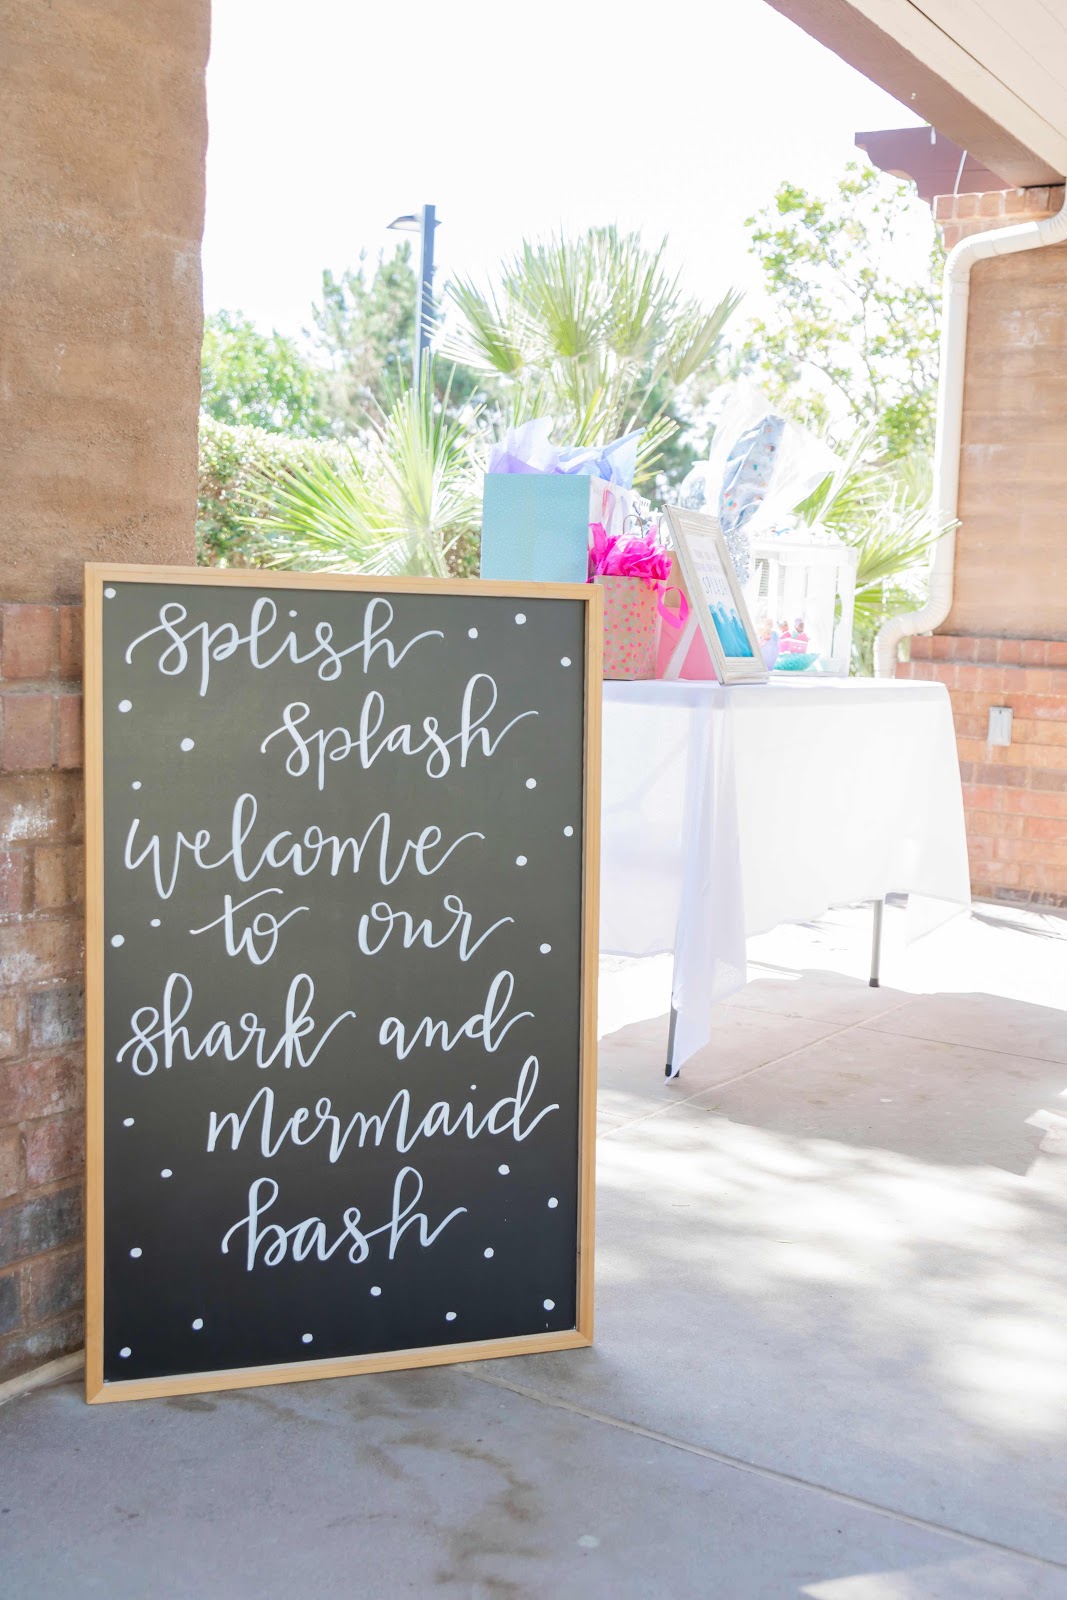 splish
splash
welcome
to our
shark and
mermaid
bash